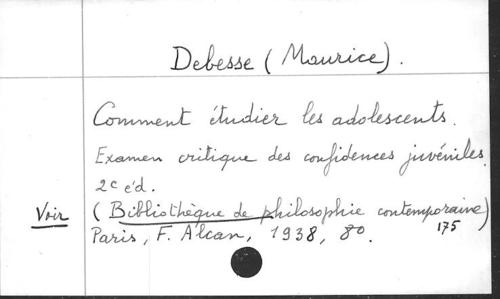 Debesse (Maurice).
Comment étudier les adolescents.
Examen critique des confidences juvéniles.
2e éd.
Voir (Bibliothèque de philosophie contemporaine)
Paris, F. Alcan, 1938, 8º. 175